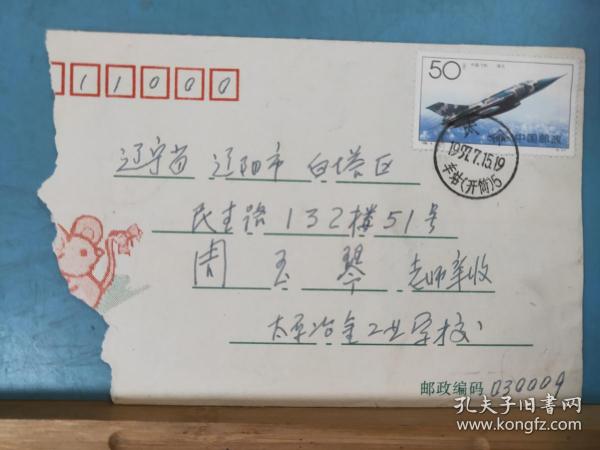 11000
50分
中国邮政
1997.7.15.19
车站(开筒)5
辽宁省 辽阳市 白塔区
民主路132楼51号
周玉琴 老师 收
太原冶金工业学校
邮政编码 030009
孔夫子旧书网
www.kongfz.com